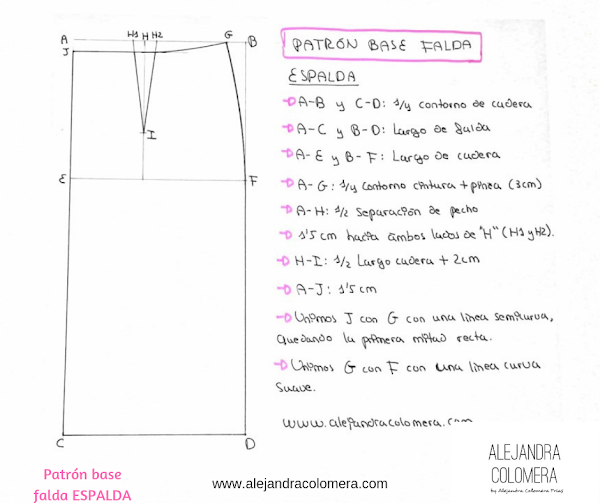 A H1 H H2 G B
J
I
E F
C D
PATRÓN BASE FALDA
ESPALDA
A-B y C-D: 1/4 contorno de cadera
A-C y B-D: Largo de falda
A-E y B-F: Largo de cadera
A-G: 1/4 contorno cintura + pinza (3cm)
A-H: 1/2 separación de pecho
1'5 cm hacia ambos lados de "H" (H1 y H2).
H-I: 1/2 Largo cadera + 2cm
A-J: 1'5 cm
Unimos J con G con una línea semicurva,
quedando la primera mitad recta.
Unimos G con F con una línea curva
suave.
www.alejandracolomera.com
Patrón base
falda ESPALDA
www.alejandracolomera.com
ALEJANDRA
COLOMERA
by Alejandra Colomera Frias